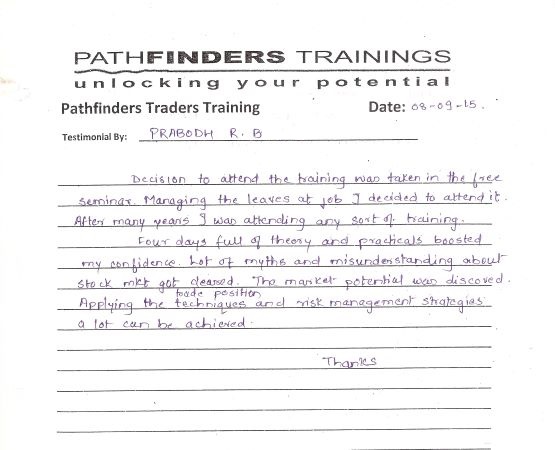 PATHFINDERS TRAININGS
unlocking your potential
Pathfinders Traders Training Date: 03-09-15.
Testimonial By: PRABODH R. B
Decision to attend the training was taken in the free
seminar. Managing the leaves at job I decided to attend it.
After many years I was attending any sort of training.
Four days full of theory and practicals boosted
my confidence. Lot of myths and misunderstanding about
stock mkt got cleared. The market potential was discoved.
trade position
Applying the techniques and risk management strategies
a lot can be achieved.
Thanks